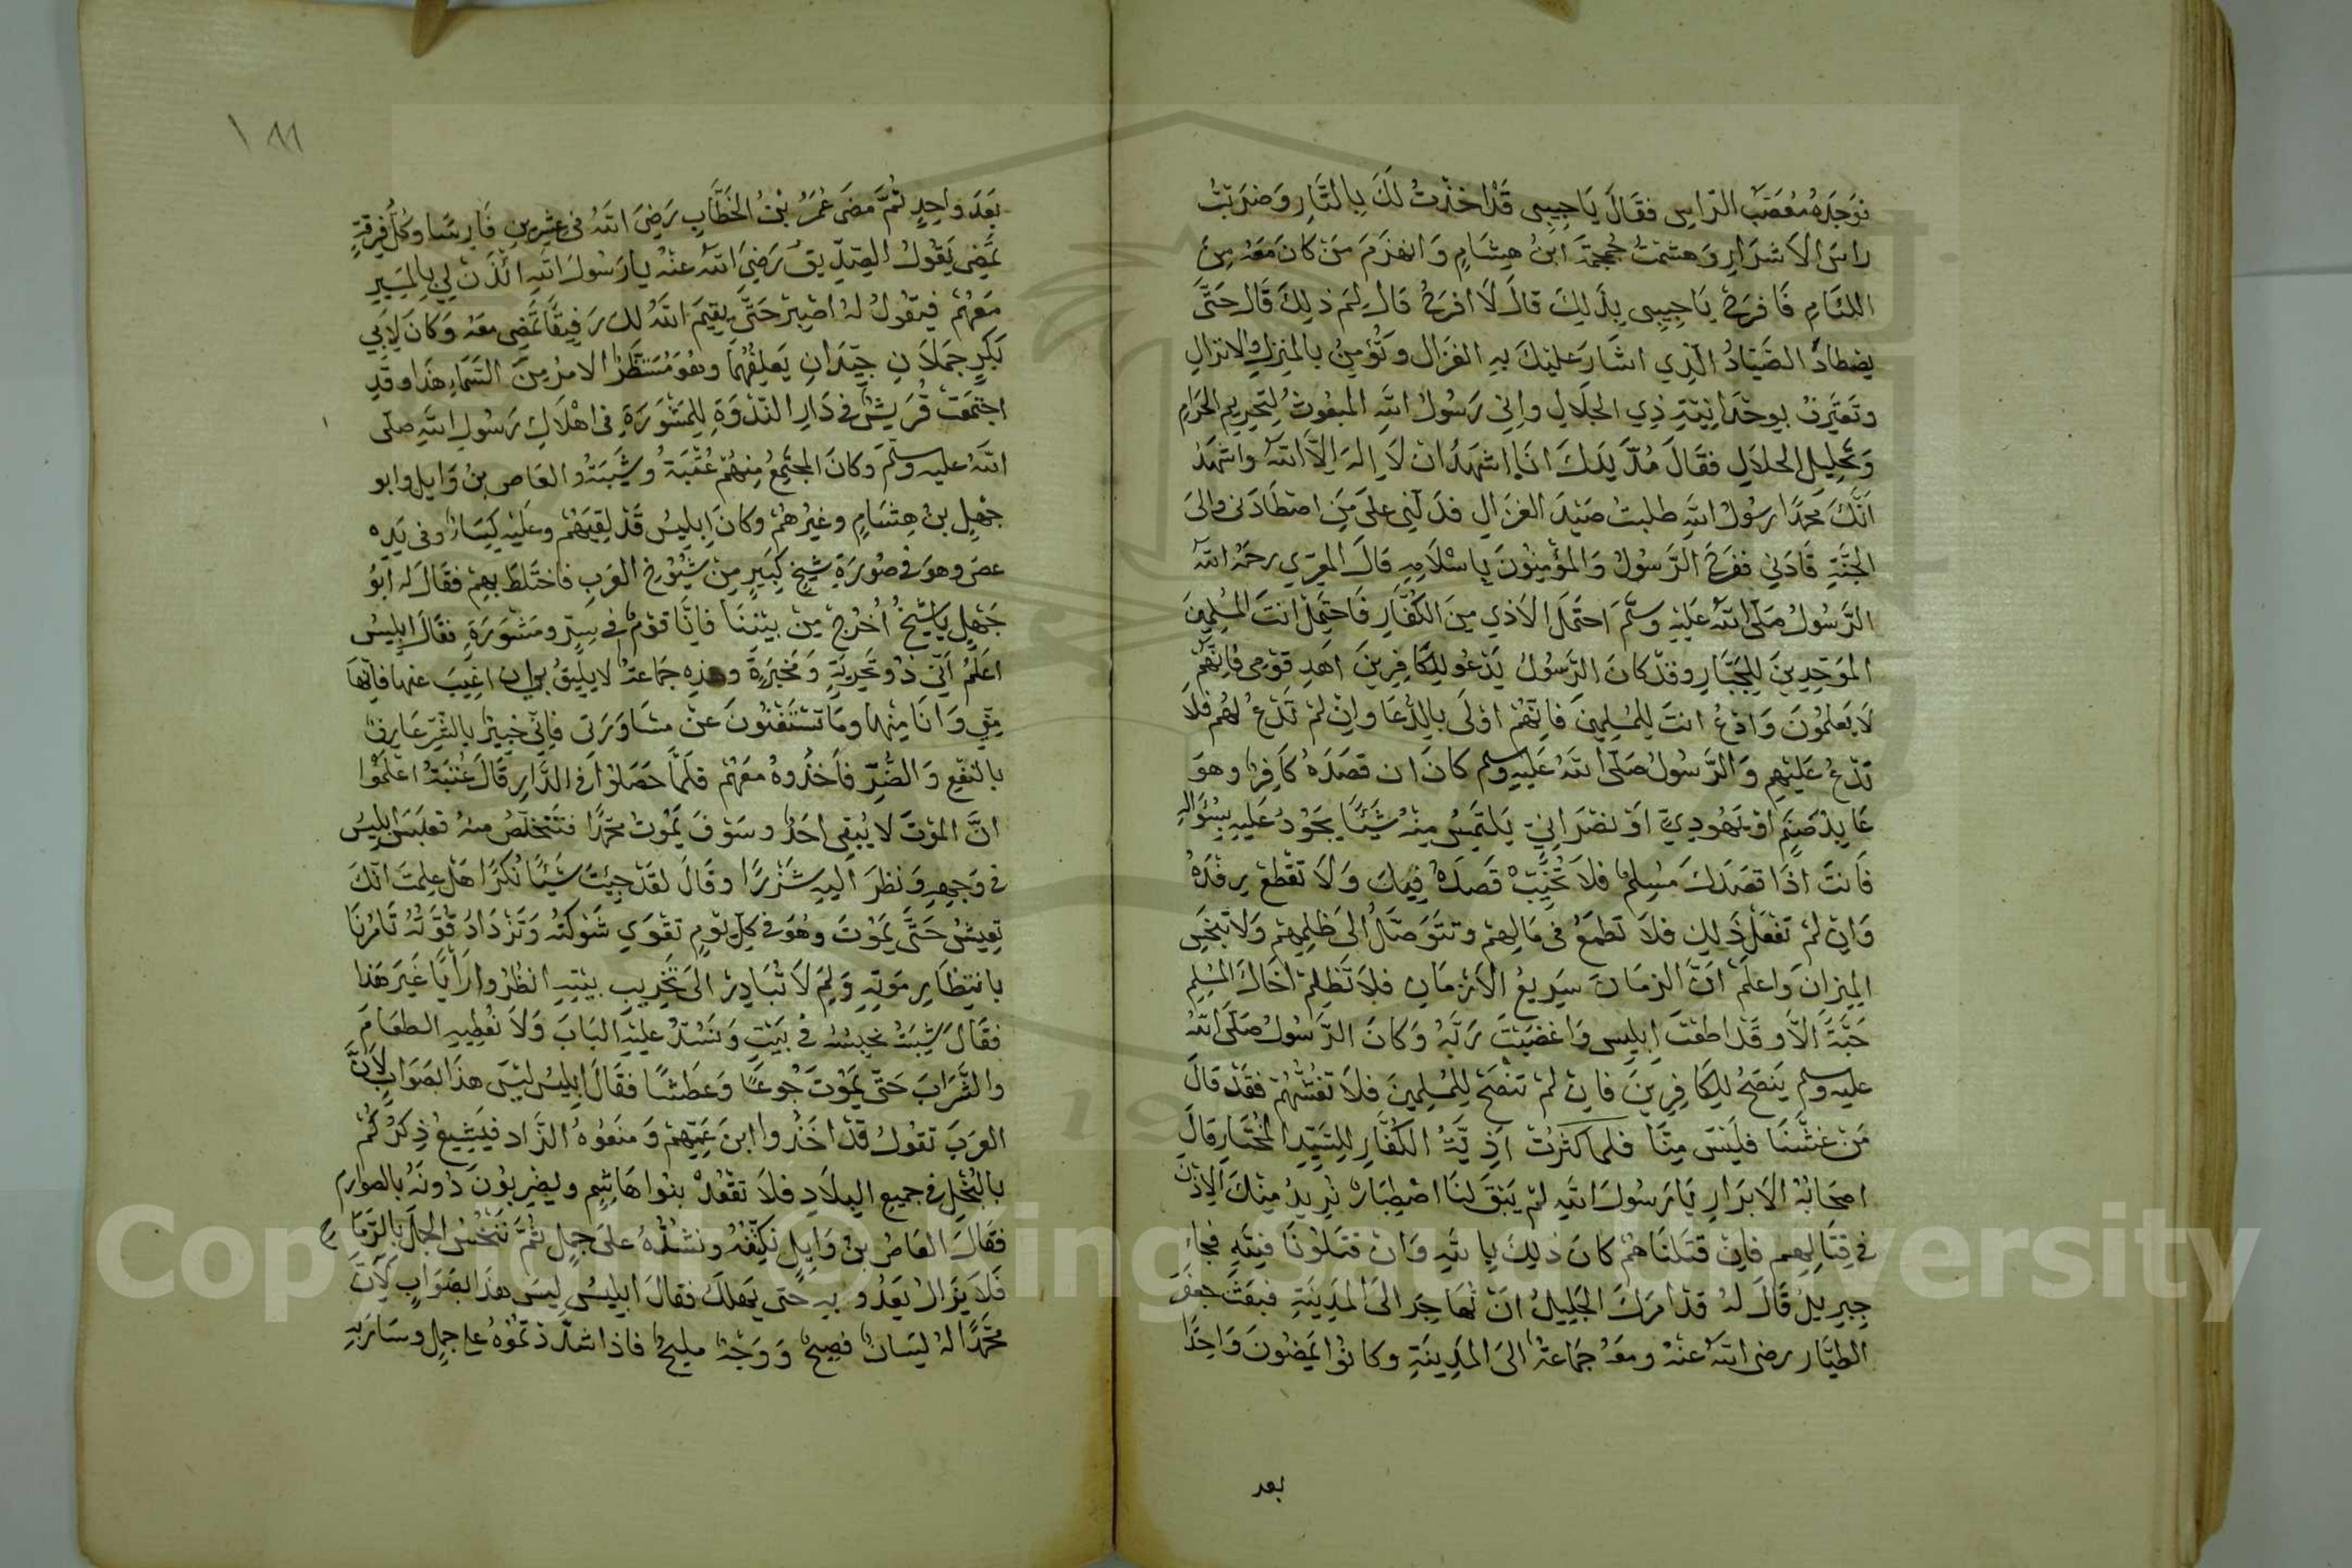 فوجده معصب الراس فقال يا حبيبى قد اخذت لك بالثار وضربت
راس الاشرار وهشمت جمجمة ابن هشام وانهزم من كان معه من
اللئام فافرح يا حبيبى بذلك قال لا افرح قال لم ذلك قال حتى
يصطادك الصياد الذي اشار عليك به الغزال وتؤمن بالمنزل والانزال
وتعترف بوحدانية ذي الجلال واني رسول الله المبعوث لتحريم الحرام
وتحليل الحلال فقال مد يدك انا اشهد ان لا اله الا الله واشهد
انك محمدا رسول الله طلبت صيد الغزال فدلني على من اصطادنى والى
الجنة قادني ففرح الرسول والمؤمنون باسلامه قال المعري رحمه الله
الرسول صلى الله عليه وسلم احتمل الاذي من الكفار فاحتمل انت المسلمين
الموحدين للجبار وقد كان الرسول يدعو للكافرين اهد قومى فانهم
لا يعلمون وادع انت للمسلمين فانهم اولى بالدعا وان لم تدع لهم فلا
تدع عليهم والرسول صلى الله عليه وسلم كان ان قصده كافر وهو
عابد صنم او يهودي او نصراني يلتمس منه شيئا يجود عليه بسؤاله
فانت اذا قصدك مسلم فلا تخيب قصده فيك ولا تقطع رفده
وان لم تفعل ذلك فلا تطمع فى مالهم وتتوصل الى ظلمهم ولا تبخس
الميزان واعلم ان الزمان سريع الازمان فلا تظلم اخاك المسلم
حبة الا وقد اطعت ابليس واغضبت ربه وكان الرسول صلى الله
عليه وسلم ينصح للكافرين فان لم تنصح للمسلمين فلا تغشهم فقد قال
من غشنا فليس منا فلما كثرت اذية الكفار للسيد المختار قال
اصحابه الابرار يا رسول الله لم يبق لنا اصطبار نريد منك الاذن
في قتالهم فان قتلناهم كان ذلك بالله وان قتلونا فيته فجاء
جبريل قال له قد امرك الجليل ان تهاجر الى المدينة فبعث جعفر
الطيار رضى الله عنه ومعه جماعة الى المدينة وكانوا يمضون واحدا
بعد
١٨٨
بعد واحد ثم مضى عمر بن الخطاب رضى الله فى عشرين فارسا وكل فرقة
تمضى يقول الصديق رضي الله عنه يا رسول الله ائذن لي بالمسير
معهم فيقول له اصبر حتى يقيم الله لك رفيقا تمضى معه وكان لابي
بكر جملان جيدان يعلفهما وهو منتظر الامر من السماء هذا وقد
اجتمعت قريش في دار الندوة للمشورة فى اهلاك رسول الله صلى
الله عليه وسلم وكان المجتمع منهم عقبة وشيبة والعاص بن وايل وابو
جهل بن هشام وغيرهم وكان ابليس قد لقيهم وعليه كساء وفى يده
عصى وهو في صورة شيخ كبير من شيوخ العرب فاختلط بهم فقال له ابو
جهل يا شيخ اخرج من بيننا فانا قوم في سر ومشورة فقال ابليس
اعلم اني ذو تجربة ومخبرة وهذه جماعة لا يليق بي ان اغيب عنها فانها
مني وانا منها وما تستغنون عن مشاورتى فانى خبير بالشر عارف
بالنفع والضر فاخذوه معهم فلما حصلوا فى الدار قال عتبة اعلموا
ان الموت لا يبقى احد وسوف يموت محمدا فنتخلص منه فعبس ابليس
في وجهه ونظر اليه شزرا وقال لقد جيت شيئا نكرا هل علمت انك
تعيش حتى يموت وهو في كل يوم تقوي شوكته وتزداد قوته تامرنا
بانتظار موته ولم لا نبادر الى تخريب بيته انظروا رايا غير هذا
فقال شيبة نحبسه في بيت ونسد عليه الباب ولا نعطيه الطعام
والشراب حتى يموت جوعا وعطشا فقال ابليس ليس هذا بصواب لان
العرب تقول قد اخذوا ابن عمهم ومنعوه الزاد فيشيع ذكركم
بالبخل في جميع البلاد فلا تقعد بنوا هاشم ويضربون دونه بالصوارم
فقال العاص بن وايل نكتفه ونشده على جمل ثم ننخس الجمل بالرماح
فلا يزال يعدو به حتى يهلك فقال ابليس ليس هذا بصواب لان
محمدا له لسان فصيح ووجه مليح فاذا شددتموه على جمل وسار به